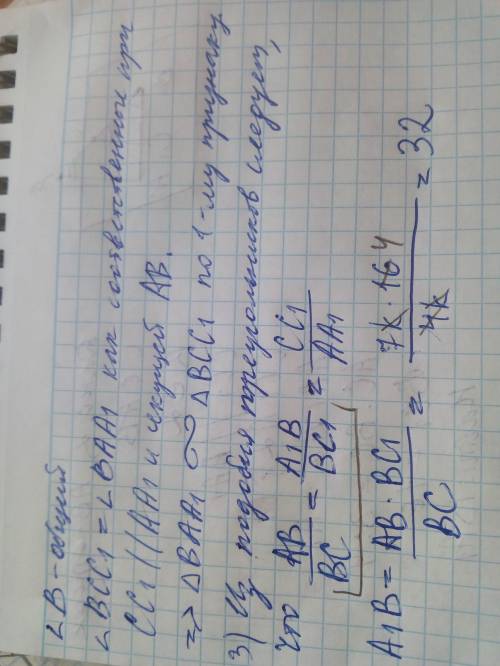 ∠B - общий
∠BCC₁ = ∠BAA₁ как соответственные при
CC₁ || AA₁ и секущей AB.
=> ΔBAA₁ ∾ ΔBCC₁ по 1-му признаку
3) Из подобия треугольников следует,
что AB/BC = A₁B/BC₁ = CC₁/AA₁
A₁B = AB · BC₁/BC = 7k · 16 4/4k = 32